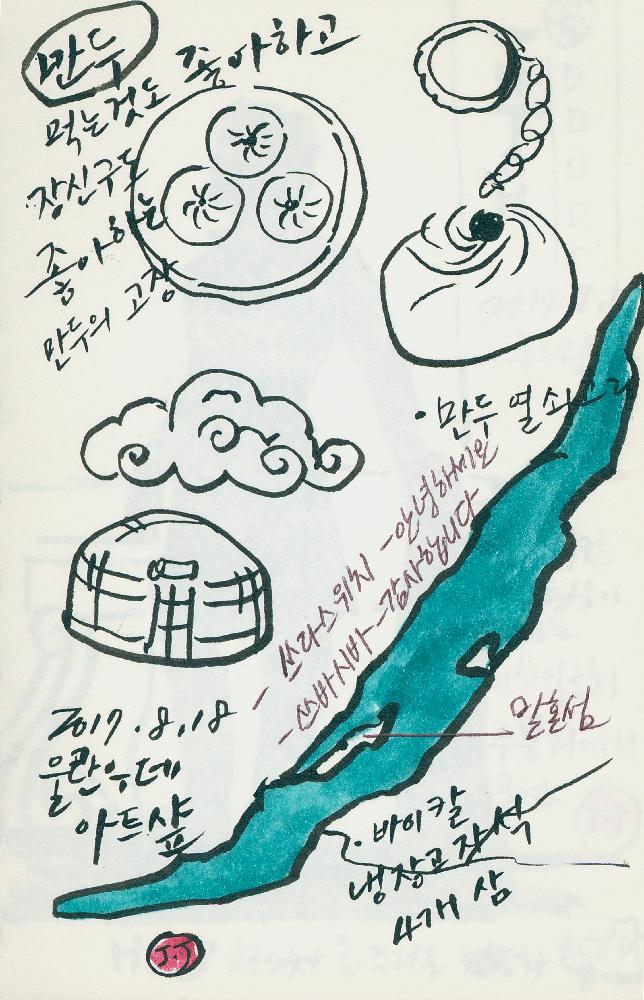 만두
먹는것도 좋아하고
장신구도
좋아하는
만두의 고장
·만두 열쇠고리
- 쓰라스위치 - 안녕하세요
- 쓰바시바 - 감사합니다
알혼섬
2017.8.18
울란우데
아트샾
·바이칼
냉장고 자석
4개 삼
J.J